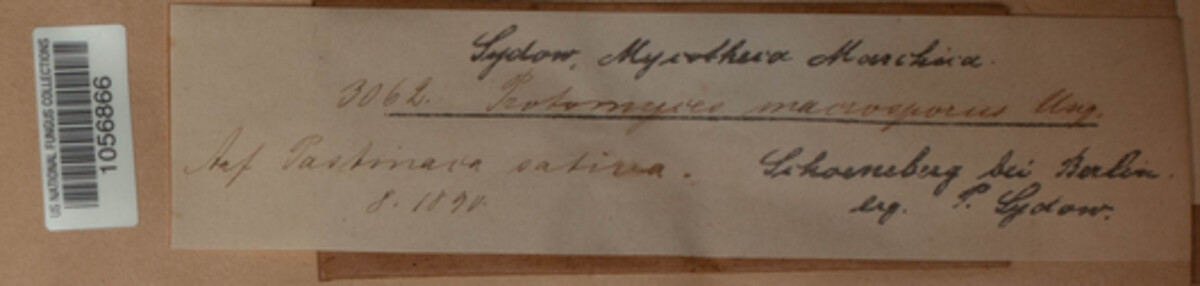 US NATIONAL FUNGUS COLLECTIONS
1056866
Sydow, Mycotheca Marchica.
3062. Protomyces macrosporus Ung.
Auf Pastinaca sativa. Schoeneberg bei Berlin.
8. 1890 leg. P. Sydow.